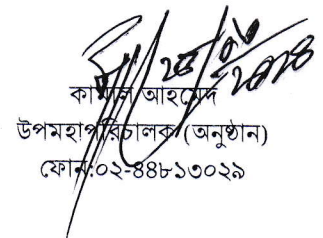 কামাল আহমেদ
উপমহাপরিচালক (অনুষ্ঠান)
ফোন:০২-৪৪৮১৩০২৯